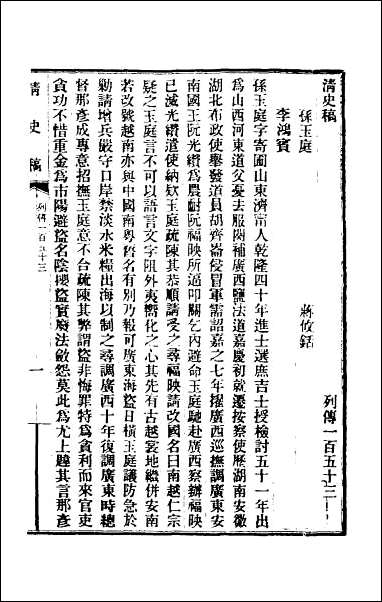 清史稿
列傳一百五十三
孫玉庭
蔣攸銛
李鴻賓
孫玉庭字寄圃山東濟甯人乾隆四十年進士選庶吉士授檢討五十一年出
爲山西河東道父憂去服闋補廣西鹽法道嘉慶初就遷按察使歷湖南安徽
湖北布政使舉發道員胡齊崙侵冒軍需詔嘉之七年擢廣西巡撫調廣東安
南國王阮光纘爲農耐阮福映所逼叩關乞內避命玉庭馳赴廣西察辦福映
已滅光纘遣使納款玉庭疏陳其恭順請受之尋福映請改國名曰南越仁宗
疑之玉庭言不可以語言文字阻外夷嚮化之心其先有古越裳地繼併安南
若改號越南亦與中國南粵舊名有別乃報可廣東海盜日橫玉庭議防急於
勦請增兵嚴守口岸禁淡水米糧出海以制之尋調廣西十年復調廣東時總
督那彥成專意招撫玉庭意不合疏陳其弊謂盜非悔罪特爲貪利而來官吏
貪功不惜重金爲市陽避盜名陰攖盜實廢法斂怨莫此爲尤上韙其言那彥
清史稿
列傳一百五十三
一